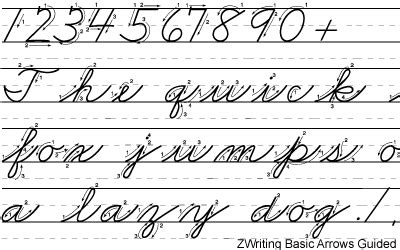 1234567890+
The quick
fox jumps o
a lazy dog.!,
ZWriting Basic Arrows Guided